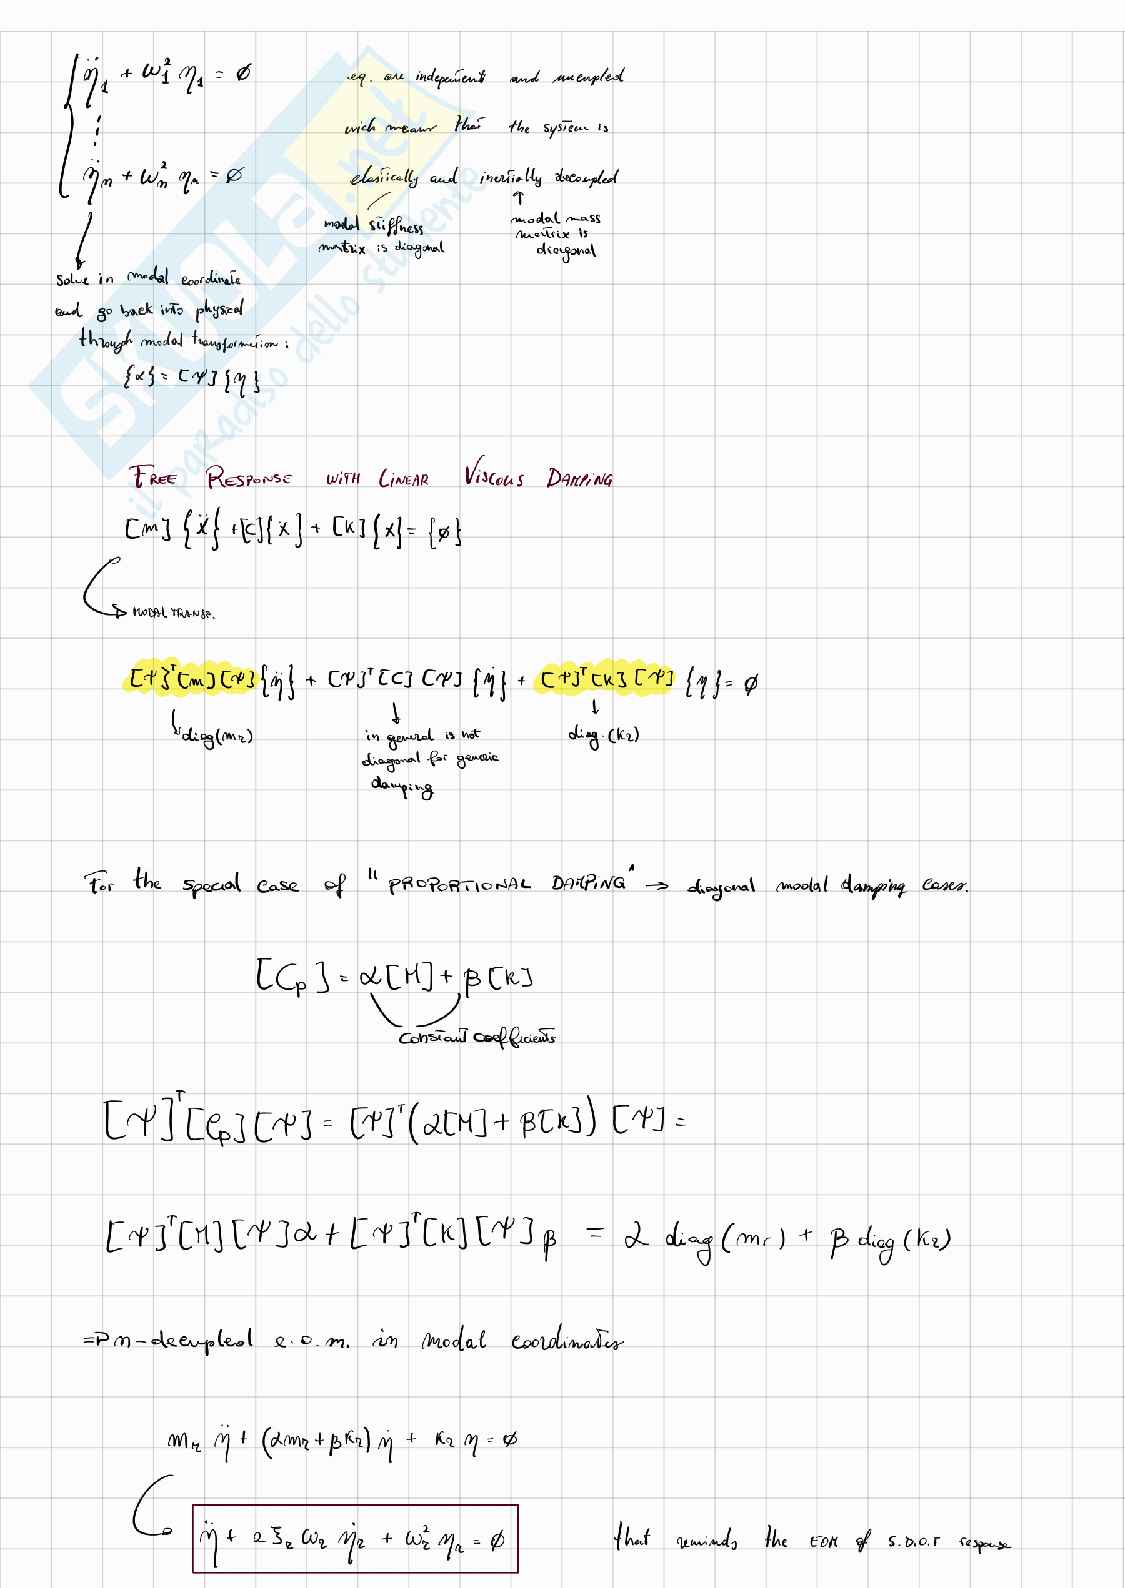 η̈₁ + ω₁² η₁ = ∅
eq. are independent and uncupled
⋮
wich means that the system is
η̈ₙ + ωₙ² ηₙ = ∅
elastically and inertially decoupled
modal stiffness
matrix is diagonal
modal mass
matrix is
diagonal
Solve in modal coordinate
and go back into physical
through modal transformation:
{x} = [Ψ] {η}
SKUOLA.net
il paradiso dello studente
FREE RESPONSE WITH LINEAR VISCOUS DAMPING
[m] {ẍ} + [C] {ẋ} + [K] {x} = {∅}
MODAL TRANSF.
[Ψ]ᵀ[m][Ψ] {η̈} + [Ψ]ᵀ[C][Ψ] {η̇} + [Ψ]ᵀ[K][Ψ] {η} = ∅
diag(mr)
in general is not
diagonal for generic
damping
diag.(kr)
For the special case of "PROPORTIONAL DAMPING" → diagonal modal damping cases.
[Cp] = α[M] + β[K]
constant coefficients
[Ψ]ᵀ[Cp][Ψ] = [Ψ]ᵀ(α[M] + β[K]) [Ψ] =
[Ψ]ᵀ[M][Ψ]α + [Ψ]ᵀ[K][Ψ]β = α diag(mr) + β diag(kr)
=D n-decupled e.o.m. in modal coordinates
mr η̈ + (αmr + βkr) η̇ + kr η = ∅
η̈ + 2 ξr ωr η̇r + ωr² ηr = ∅
that reminds the EOM of S.D.O.F response